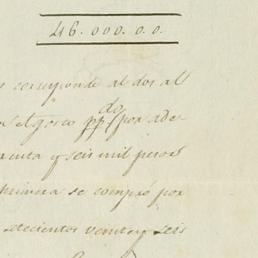 46.000.0.0.
corresponde al dos al
do
por ade
renta y seis mil pesos
primera se compró por
setecientos veinte y seis